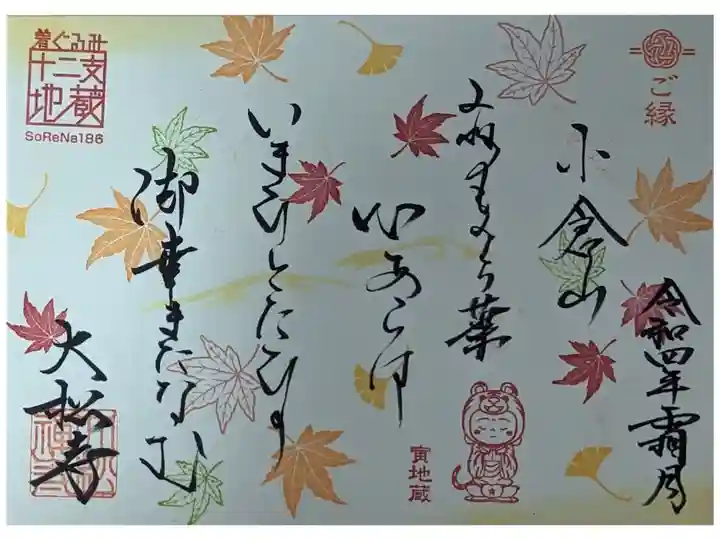 ご縁
令和四年霜月
小倉山
みねのもみち葉
心あらは
いまひとたひの
御幸またなむ
大松寺
寅地蔵
着ぐるみ
十二支
地蔵
SoReNa186